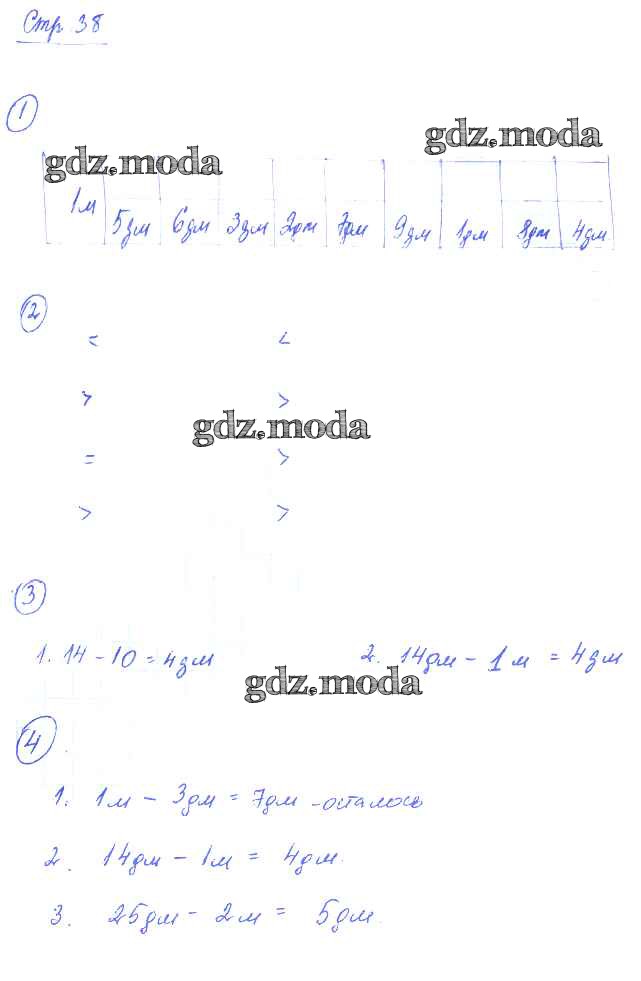 Стр 38
1
gdz.moda
gdz.moda
1м 5дм 6дм 3дм 2дм 7дм 9дм 1дм 8дм 4дм
2
= <
> >
gdz.moda
= >
> >
3
1. 14 - 10 = 4дм 2. 14дм - 1м = 4дм
gdz.moda
4
1. 1м - 3дм = 7дм - осталось
2. 14дм - 1м = 4дм.
3. 25дм - 2м = 5дм.